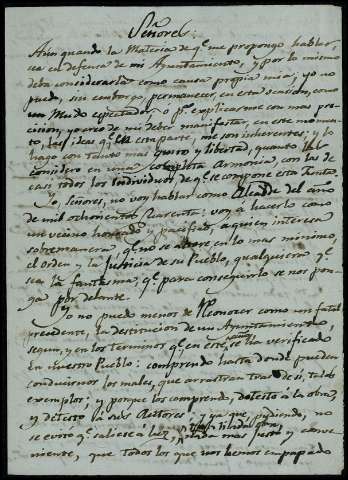 Señores:
Aun quando la Materia de q.e me propongo hablar,
sea en defensa de mi Ayuntamiento, y por lo mismo
deba considerarla como causa propia mia; yo no
puedo, sin embargo, permanecer en esta ocasion, como
un Mudo espectador, o p.a explicarme con mas pre-
cision, yo creo de mi deber manifestar, en este momen-
to, las ideas q.e en esta parte, me son inherentes; y lo
hago con tanto mas gusto y libertad, quanto las
considero en una completa Armonia, con las de
casi todos los Individuos de q.e se compone esta Junta.
Yo, Señores, no voy hablar como Alcalde del año
de mil ochocientos Quarenta: voy a hacerlo como
un vecino honrado y pacifico, a quien interesa
sobremanera q.e no se altere en lo mas minimo,
el Orden y la Justicia de su Pueblo, qualquiera q.e
sea la fantasma, q.e para conseguirlo se nos pon-
ga por delante.
Yo no puedo menos de Reconocer como un fatal
precidente, la destitucion de un Ayuntamiento,
segun, y en los terminos q.e en este año se ha verificado
en nuestro Pueblo: comprendo hasta donde pueden
conducirnos los males, que arrastran tras de si, tales
exemplos; y porque los comprendo, detesto a la obra,
y detesto a sus Actores: y ya que, pudiendo, no
se evitó q.e saliese a luz, mas justo y conve-
niente, que todos los que nos hemos empapado